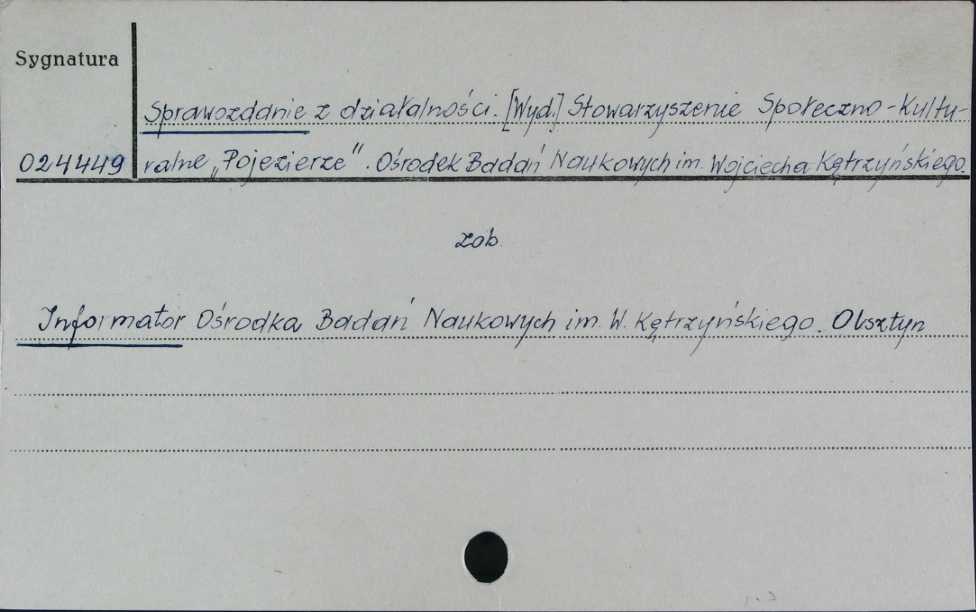 Sygnatura
Sprawozdanie z działalności. [Wyd.] Stowarzyszenie Społeczno-Kultu-
024449 ralne „Pojezierze". Ośrodek Badań Naukowych im. Wojciecha Kętrzyńskiego.
zob.
Informator Ośrodka Badań Naukowych im. W. Kętrzyńskiego. Olsztyn